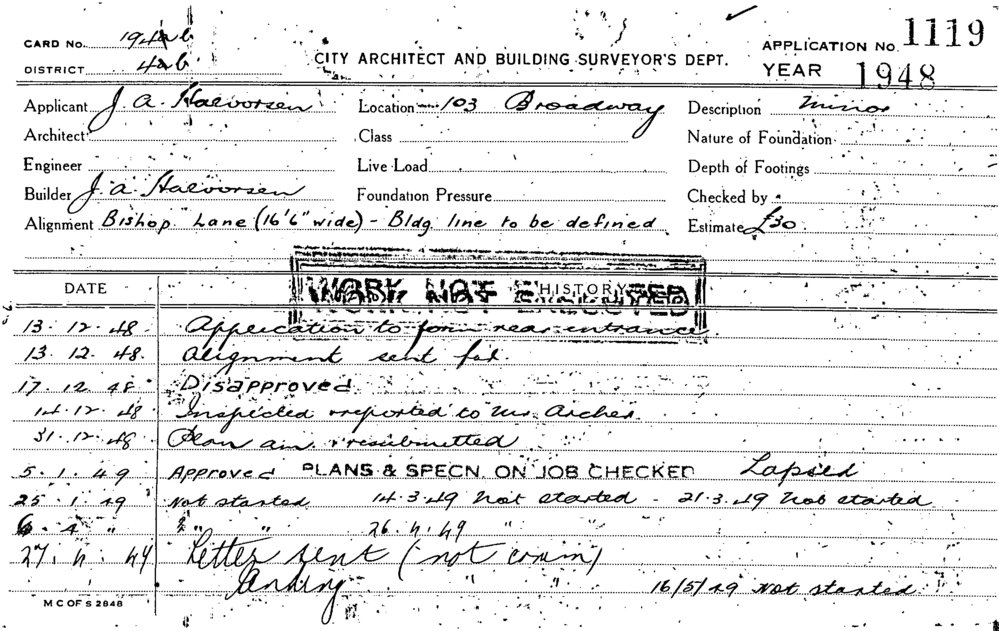 CARD No.
DISTRICT 42b
CITY ARCHITECT AND BUILDING SURVEYOR'S DEPT.
APPLICATION No. 1119
YEAR 1948
Applicant J. A. Halvorsen
Location 103 Broadway
Description minor
Architect
Class
Nature of Foundation
Engineer
Live Load
Depth of Footings
Builder J. A. Halvorsen
Foundation Pressure
Checked by
Alignment Bishop Lane (16'6" wide) - Bldg. line to be defined
Estimate £30
WORK NOT EXECUTED
DATE HISTORY
13. 12. 48. Application to form rear entrance
13. 12. 48. Alignment sent for.
17. 12. 48 Disapproved
14. 12. 48 Inspected & reported to Mr. Archer
31. 12. 48 Plan am. & resubmitted
5. 1. 49 Approved PLANS & SPECN. ON JOB CHECKED Lapsed
25. 1. 49 Not started 14.3.49 Not started - 21.3.49 Not started
6. 4. " " " 26.4.49 "
27. 4. 49 Letter sent (not comm)
" " 16/5/49 Not started
M C OF S 2848